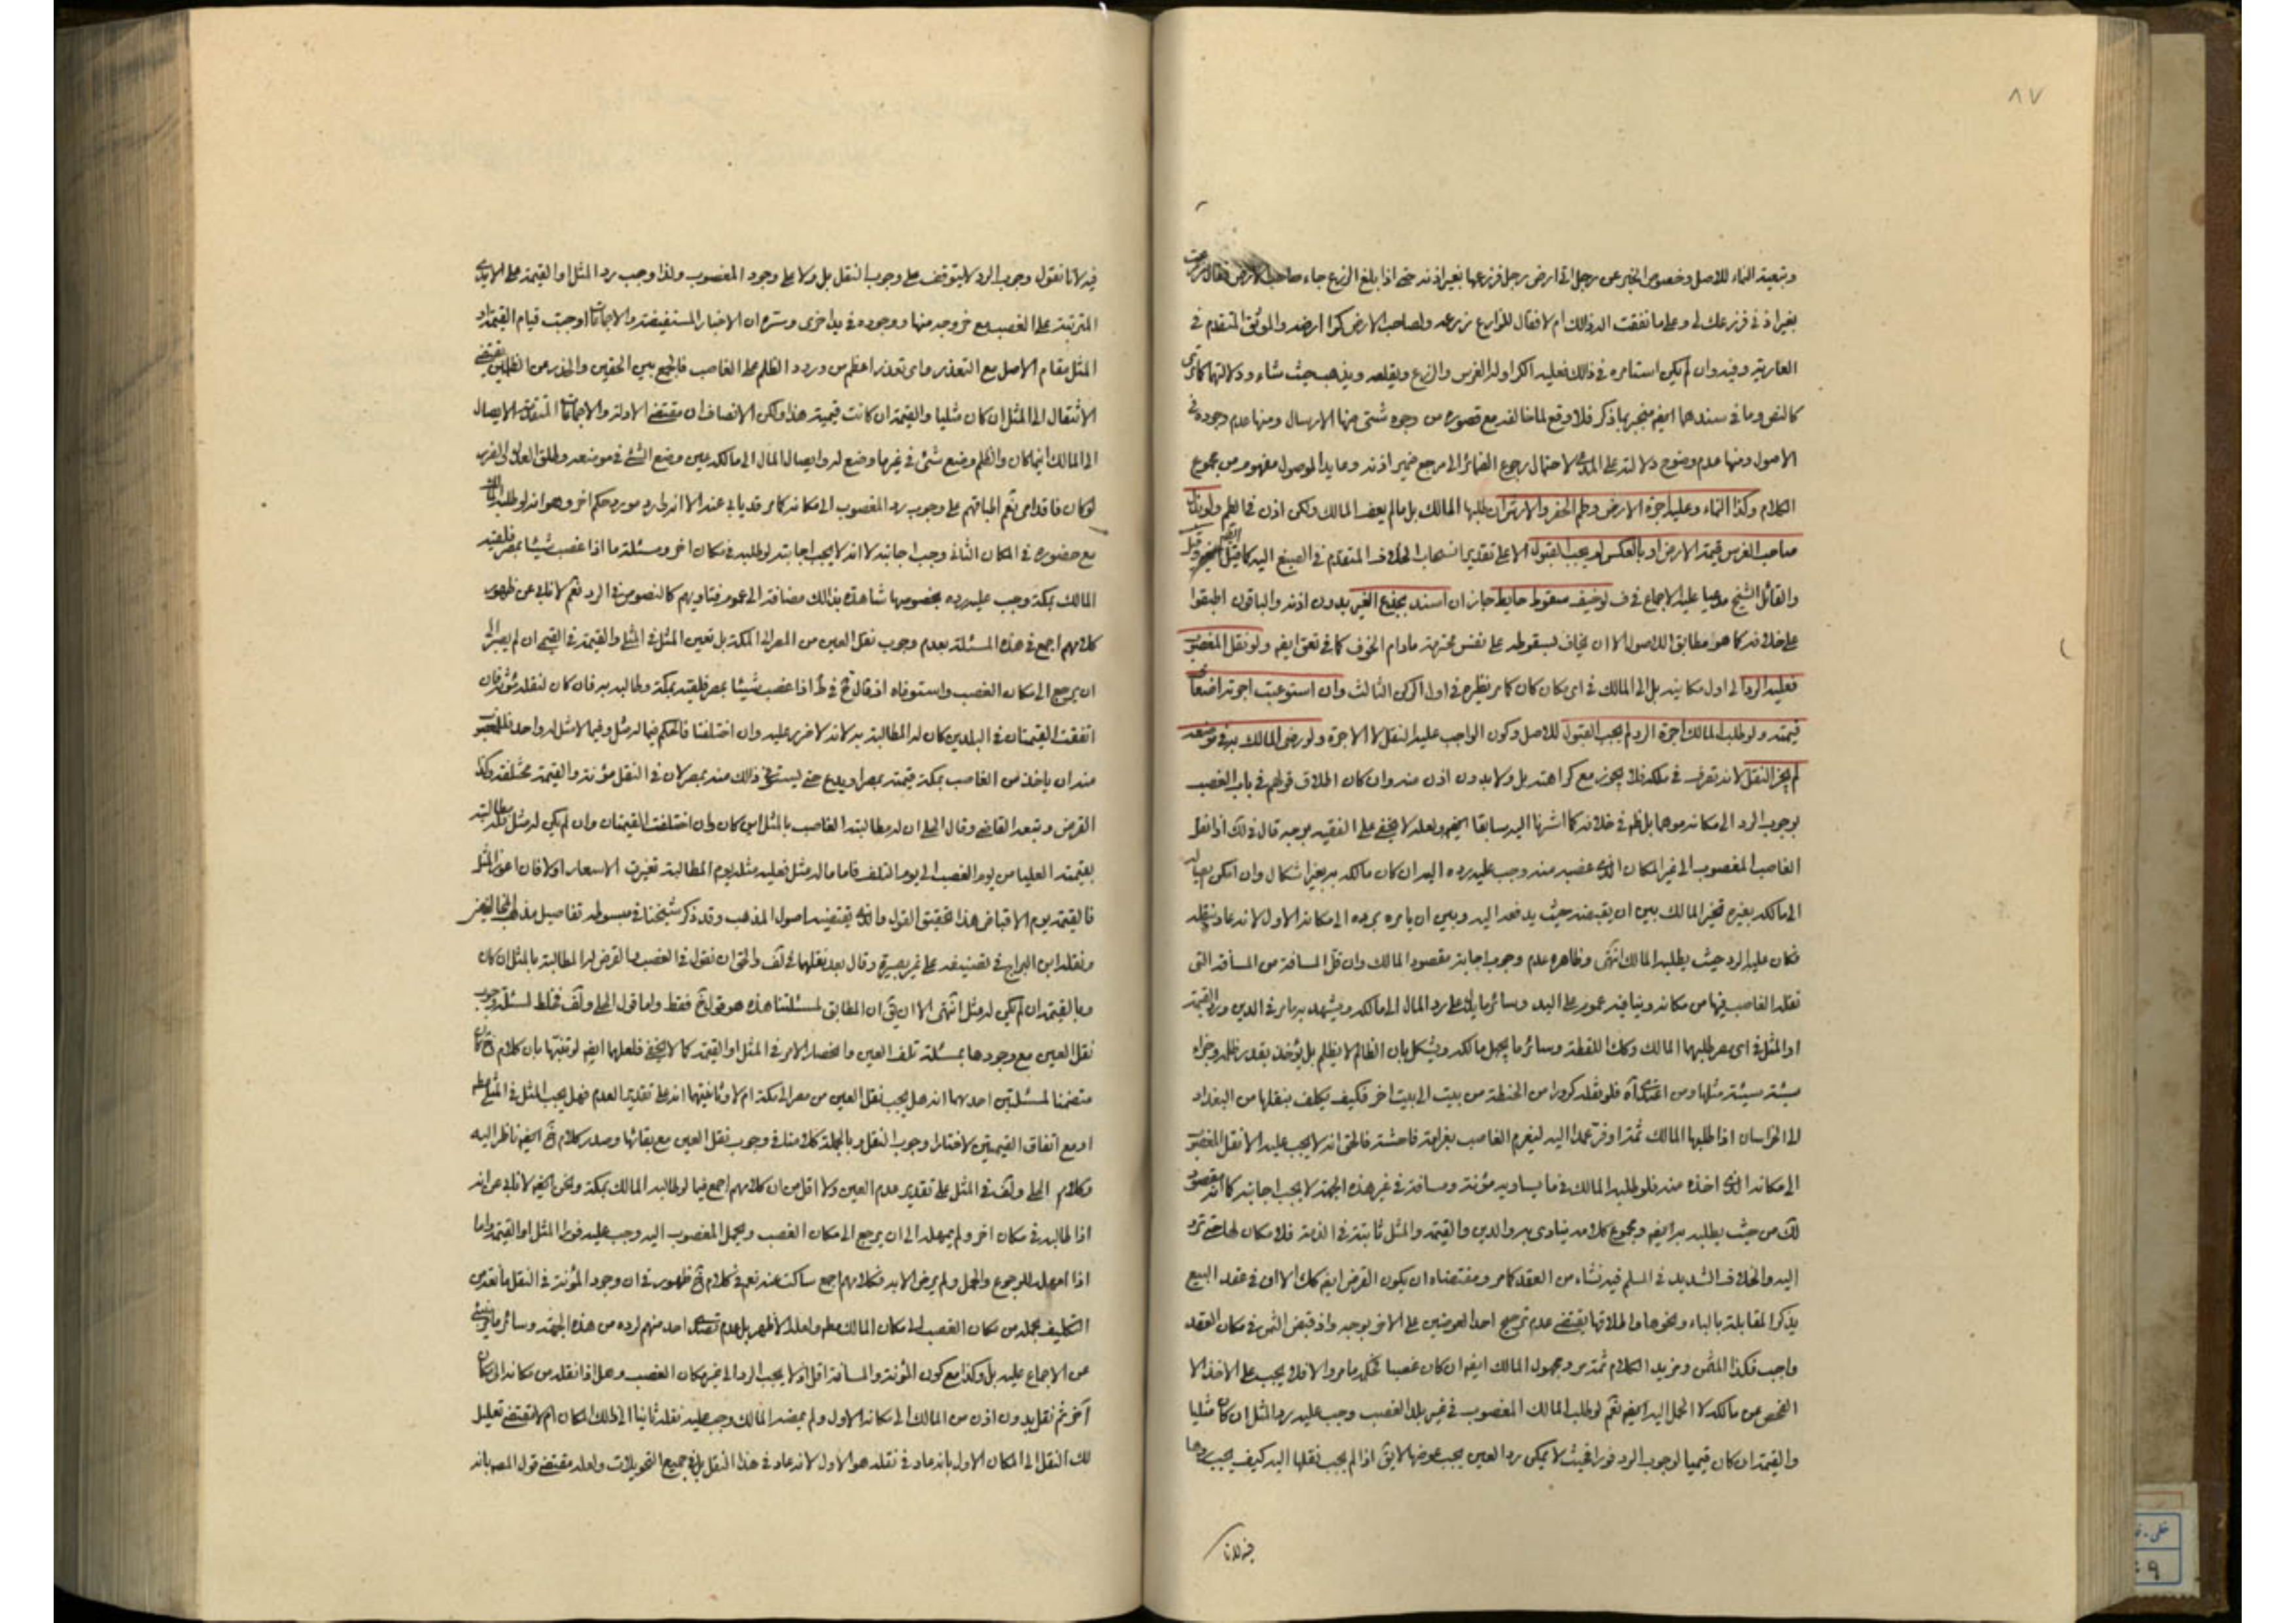 ٨٧
وتبعية النماء للاصل وخصوص الخبر عن رجل اتى ارض رجل فزرعها بغير اذنه حتى اذا بلغ الزرع جاء صاحب الارض فقال زرعت
بغير اذنى فزرعك لى وعلى ما نفقت اله ذلك ام لا فقال للزارع زرعه ولصاحب الارض كرا ارضه والموثق المتقدم فى
العارية وفيه وان لم يكن استامره فى ذلك فعليه الكرا وله الغرس والزرع ويقلعه ويذهب حيث شاء ودلالتها كما ترى
كالنص وما فى سندهما ايضا منجبر بما ذكر فلا وقع لما خالفه مع قصوره من وجوه شتى منها الارسال ومنها عدم وجوده فى
الاصول ومنها عدم وضوح دلالته على المدعى لاحتمال رجوع الضمائر الى مرجع ضمير اذنه وما يد الموصول مفهومه من مجموع
الكلام وكذا النماء وعليه اجرة الارض وطم الحفر والارش ان طلبها المالك بل مالم يعف المالك ولكن اذن فى الطم ولو بذل
صاحب الغرس قيمة الارض او بالعكس لم يجب القبول الا على تقدير انسحاب الخلاف المتقدم فى الصبغ اليه كما قيل
والقائل الشيخ مدعيا عليه الاجماع فى ف لو خيف سقوط حايط جاز ان اسند بجذع الغير بدون اذنه والباقون اطبقوا
على خلافه كما هو مطابق للاصول الا ان يخاف بسقوطه على نفس محترمة مادام الخوف كما فى نعق ايضا ولو نقل المغصوب
فعليه الرد الى اول مكانيه بل الى المالك فى اى مكان كان كما مر نظيره فى اول الركن الثالث وان استوعبت اجرته اضعاف
قيمته ولو طلب المالك اجرة الرد لم يجب القبول للاصل وكون الواجب عليه النقل لا الاجرة ولو رضى المالك به فى موضعه
لم يجز النقل لانه تصرف فى ملكه فلا يجوز مع كراهته بل ولا بدون اذن منه وان كان اطلاق قولهم فى باب الغصب
بوجوب الرد الى مكانه موهما بل ظم فى خلافه كما اشرنا اليه سابقا ايضا ولعله لا يخفى على الفقيه بوجه قال فى لك اذا نقل
الغاصب المغصوب الى غير المكان الذى غصبه منه وجب عليه رده اليه ان كان مالكه به بغير اشكال وان امكن ايصاله
الى مالكه بغيره تخير المالك بين ان يقبضه حيث يدفعه اليه وبين ان يامره برده الى مكانه الاول لانه عاد بنقله
فكان عليه الرد حيث يطلبه المالك انتهى وظاهره عدم وجوب اجابة مقصود المالك وان قل المسافة من المسافة التى
نقله الغاصب فيها من مكانه وينافيه عموم على اليد وسائر ما يدل على رد المال الى مالكه ويشهد به ما مر فى الدين ورد القيمة
او المثل فى اى مصر طلبهما المالك وكذا اللقطة وسائر ما يجهل مالكه ويشكل بان الظالم لا يظلم بل يؤخذ بقدر ظلمه وجزاء
سيئة سيئة مثلها ومن اعتدى آه فلو نقله كرورا من الحنطة من بيت الى بيت اخر فكيف يكلف بنقلها من البغداد
الى الخراسان اذا طلبها المالك ثمة او فر عمدا اليه ليغرم الغاصب بغرامة فاحشة فالحق انه لا يجب عليه الا نقل المغصوب
الى مكانه الذى اخذه منه فلو طلبه المالك فى ما يساويه مؤنة ومسافة فى غير هذه الجهة لا يجب اجابته كما انه مقصود
لك من حيث يطلبه به ايضا ومجموع كلامه ينادى به والدين والقيمة والمثل ثابتة فى الذمة فلا مكان لها حتى ترد
اليه والخلاف الشديد فى المسلم فيه نشاء من العقد كما مر ومقتضاه ان يكون القرض ايضا كك الا ان فى عقد البيع
يذكر المقابلة بالباء ونحوها واطلاقها يقتضى عدم ترجيح احد العوضين على الاخر بوجه واذ قبض الثمن فى مكان العقد
واجب فكذا المثمن ومزيد الكلام ثمة مر ومجهول المالك ايضا ان كان غصبا فحكمه ما مر والا فلا يجب على الاخذ الا
الفحص عن مالكه لا الحمل اليه ايضا نعم لو طلب المالك المغصوب فى غير بلد الغصب وجب عليه رد المثل ان كان مثليا
والقيمة ان كان قيميا لوجوب الرد فورا فحيث لا يمكن رد العين يجب عوضها لا يق اذا لم يجب نقلها اليه كيف يجب ردها
فيه لانا
فيه لانا نقول وجوب الرد لا يتوقف على وجوب النقل بل ولا على وجود المغصوب ولذا وجب رد المثل او القيمة على الايدى
المترتبة على الغصب مع خروجه منها ووجوده فى يد اخرى وسترى ان الاخبار المستفيضة والاجماعات اوجبت قيام القيمة او
المثل مقام الاصل مع التعذر واى تعذر اعظم من ورود الظلم على الغاصب فالجمع بين الحقين والحذر من الظلمين يقتضى
الانتقال الى المثل ان كان مثليا والقيمة ان كانت قيمية هذا ولكن الانصاف ان مقتضى الادلة والاجماعات المتقدمة الايصال
الى المالك اينما كان والظلم وضع شئ فى غير ما وضع له وايصال المال الى مالكه عين وضع الشئ فى موضعه وطلق العدل والغرس
لو كان فاقدا من نعم اطباقهم على وجوب رد المغصوب الى مكانه كما مر قد يابى عنه الا انه لوارد مورد حكم اخر وهو انه لو طلب المالك
مع حضوره فى المكان الثانى وجب اجابته لا انه لا يجب اجابته لو طلبه فى مكان اخر ومسئلة ما اذا غصب شيئا بمصر فلقيه
المالك بمكة وجب عليه رده بخصوصها شاهدة بذلك مضافة الى عموم فتاويهم كالنصوص فى الرد نعم لا نابى عن ظهور
كلامهم اجمع فى هذه المسئلة بعدم وجوب نقل العين من المصر الى المكة بل تعين المثل فى المثلى والقيمة فى القيمى ان لم يصبر الى
ان يرجع الى مكان الغصب واستوفاه اذ قال خ فى ط اذا غصب شيئا بمصر فلقيه بمكة وطالبه به فان كان لنقله مؤنة فان
اتفقت القيمتان فى البلدين كان له المطالبة به لانه لا ضرر عليه وان اختلفتا فالحكم فيما له مثل وفيما لا مثل له واحد فللمغصوب
منه ان ياخذ من الغاصب بمكة قيمته بمصر او يدع حتى يستوفى ذلك منه بمصر لان فى النقل مؤنة والقيمة مختلفة وكذا
القرض وتبعه القاضى وقال الحلى ان له مطالبة الغاصب بالمثل اين كان وان اختلفت القيمتان وان لم يكن له مثل فله مطالبته
بقيمته العليا من يوم الغصب الى يوم التلف فاما ما له مثل فعليه مثله يوم المطالبة تغيرت الاسعار اولا فان اعوز المثل
فالقيمة يوم الاقباض هذا تحقيق القول والذى يقتضيه اصول المذهب وقد ذكر شيخنا فى مبسوطه تفاصيل مذهب المخالفين
ونقله ابن البراج فى تصنيفه على غير بصيرة وقال بعد نقلهما فى لف والحق ان نقول فى الغصب والقرض له المطالبة بالمثل ان كان
وبالقيمة ان لم يكن له مثل انتهى الا ان يق ان المطابق لمسئلتنا هذه هو قول خ فقط واما قول الحلى ولف فخلط لمسئلة وجوب
نقل العين مع وجودها بمسئلة تلف العين وانحصار الامر فى المثل او القيمة كما لا يخفى فلعلهما ايضا لو تنبها بان كلام خ كان
متضمنا لمسئلتين احدهما انه هل يجب نقل العين من مصر الى مكة ام لا وثانيتهما انه على تقدير العدم فهل يجب المثل فى المثلى مطلقا
او مع اتفاق القيمتين لاختارا وجوب النقل وبالجملة كلامنا فى وجوب نقل العين مع بقائها وصدر كلام خ ايضا ناظر اليه
وكلام الحلى ولف فى المثل على تقدير عدم العين ولا اقل من ان كلامهم اجمع فيما لو طالبه المالك بمكة ونحن ايضا لا نابى عن انه
اذا طالبه فى مكان اخر ولم يمهله الى ان يرجع الى مكان الغصب ويحمل المغصوب اليه وجب عليه فورا المثل او القيمة واما
اذا امهله للرجوع والحمل ولم يرض الا به فكلامهم اجمع ساكت عنه نعم فى كلام خ ظهور فى ان وجود المؤنة فى النقل مانعة من
التكليف بحمله من مكان الغصب الى مكان المالك مطم ولعله الاظهر بل عدم تصدى احد منهم لرده من هذه الجهة وسائر ما
عن الاجماع عليه بل وكذا مع كون المؤنة والمسافة اقل اذ لا يجب الرد الى غير مكان الغصب وهل اذا نقله من مكانه الى مكان
آخر ثم نقل بدون اذن من المالك الى مكانه الاول ولم يمضه المالك وجب عليه نقله ثانيا الى ذلك المكان ام لا يقتضى تعليل
لك النقل الى المكان الاول بانه عاد فى نقله هو الاول لانه عاد فى هذا النقل بل فى جميع التحويلات ولعله مقتضى قول المصه بانه